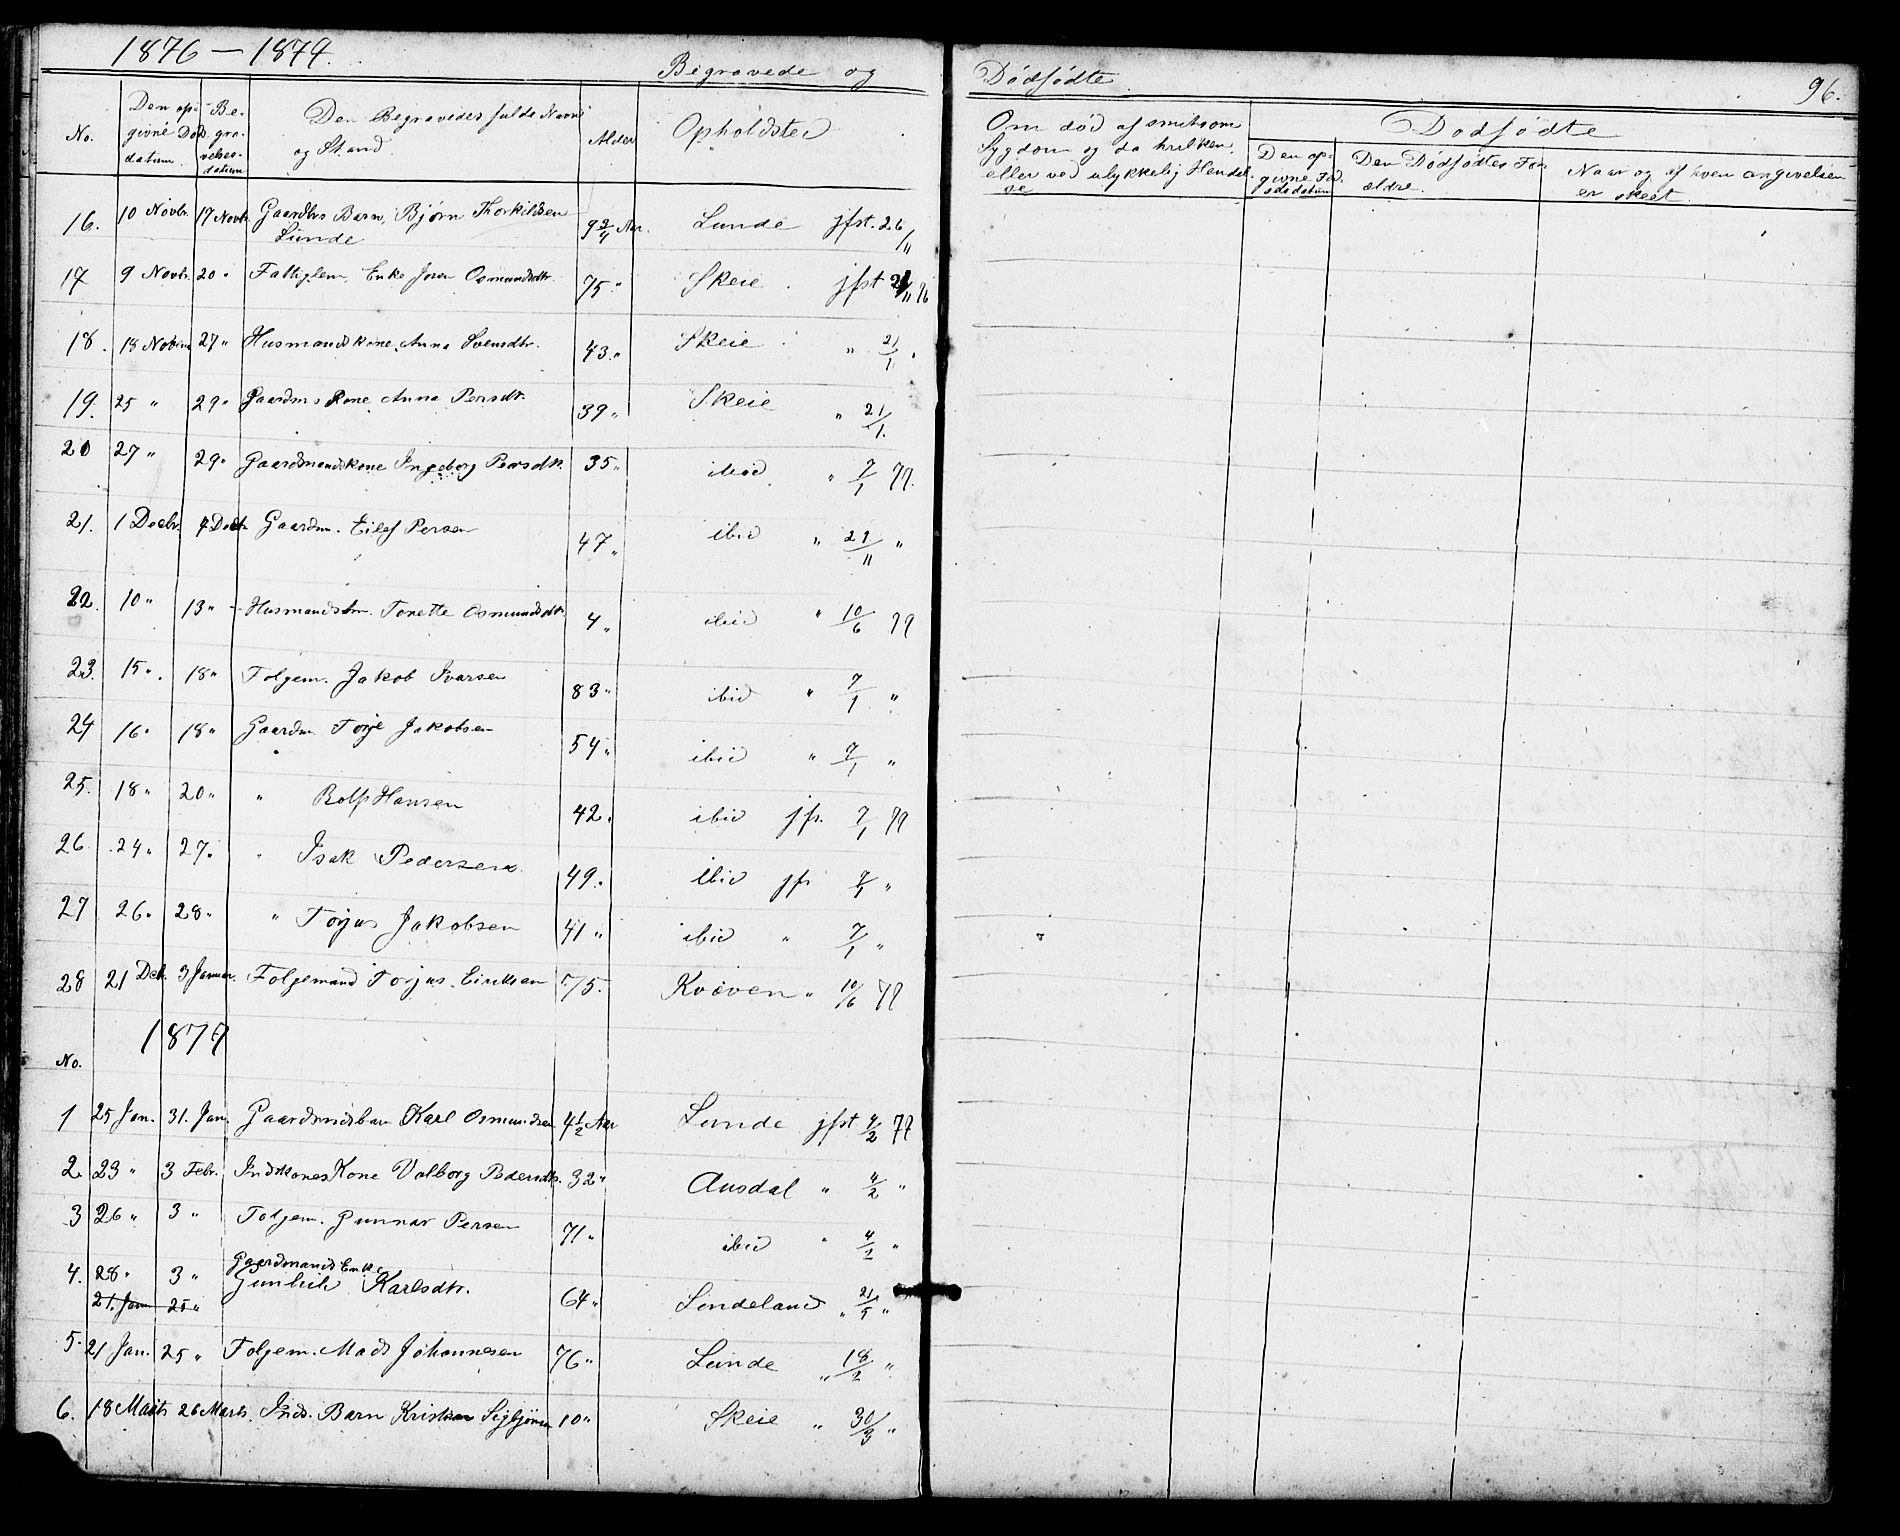 1876 — 1879.
Begravede og Dødfødte
96.
No.
Den op-
givne Døds
datum.
Be-
gra-
velses-
datum
Den Begravedes fulde Navn
og Stand.
Alder
Opholdsted
Om død af smitsom
Sygdom og da hvilken,
eller ved ulykkelig Hendel-
se
Dødfødte
Den op-
givne Fød-
selsdatum
Den Dødfødtes For-
ældre.
Naar og af hvem angivelsen
er skeet.
16. 10 Novbr. 17 Novbr. Gaardbrs Barn, Bjørn Thorkildsen 9 3/4 Aar. Lunde jfst. 26/11
Lunde
17 9 Novbr. 20 " Fattiglem, Enke Joren Osmundsdtr. 75 " Skeie. jfst 21/11 76
18. 18 Novbr 27 " Husmandskone, Anna Svensdtr. 43. " Skeie " 21/1 "
19. 25 " 29 " Gaardms Kone Anna Persdtr. 39 " Skeie " 21/1.
20 27 " 29 " Gaardmandskone Ingeborg Persdtr. 35 " ibid " 7/1 77.
21. 1 Decbr. 4 Decbr Gaardm. Eilef Persen 47 " ibid " 21/11 "
22. 10 " 13 " Husmandsbn. Tonette Osmundsdtr. 4 " ibid " 10/6 77
23. 15 " 18 " Folgem. Jakob Ivarsen 83 " ibid " 7/1 "
24 16 " 18 " Gaardm. Torje Jakobsen 54 " ibid " 7/1 "
25. 18 " 20 " " Rolf Hansen 42 " ibid jfr. 7/1 77
26 24 " 27 " " Isak Pedersen 49. ibid jfr 7/1 "
27 26 " 28 " " Torjus Jakobsen 41 " ibid " 7/1 "
28 21 Deb. 3 Januar. Folgemand Torjus Eriksen 75. Kvæven " 10/6 77
1877
No.
1 25 Jan. 31. Jan. Gaardmdsbarn Karl Osmundsen 4 1/2 Aar Lunde jfst 4/2 77
2. 23 " 3 Febr. Kone Valborg Pedersdtr. 32 " Ausdal " 4/2 "
3 26 " 3 " Folgem. Gunnar Persen 71 " ibid " 4/2 "
4. 28 " 3 " Gaardmands Enke
Gunhild Karlsdtr. 64 " Lindeland " 21/5 "
21. Jan 25 "
5. 21 Jan. 25 " Folgem. Mads Johannesen 76 " Lunde " 18/2 "
6. 18 Marts 26 Marts. Inds. Barn Kristian 10 " Skeie " 30/3 "